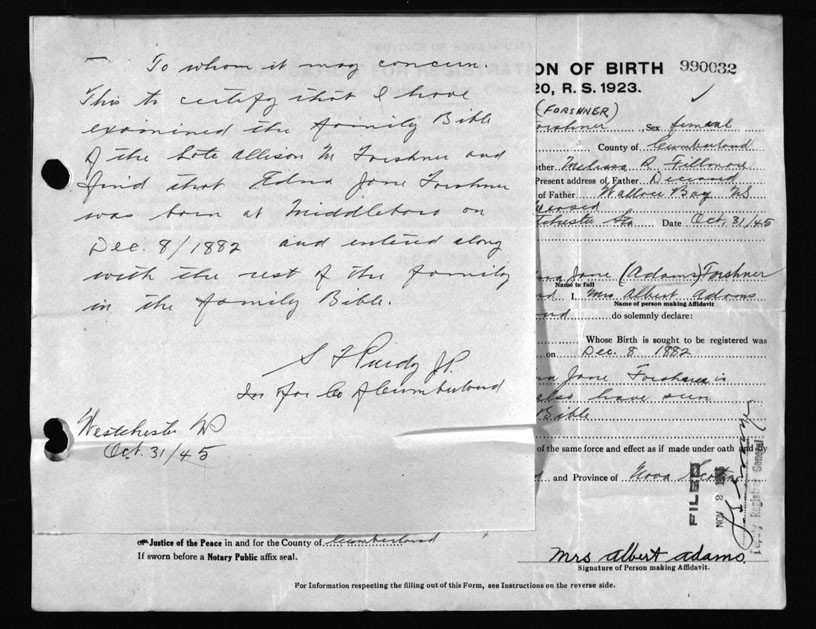 To whom it may concern.
This to certify that I have
examined the family Bible
of the late Allison M Forshner and
find that Edna Jane Forshner
was born at Middleboro on
Dec. 8/1882 and entered along
with the rest of the family
in the family Bible.
S F Purdy J.P.
In for Co of Cumberland
Westchester NS
Oct. 31/45
ON OF BIRTH 990032
20, R. S. 1923.
(FORSHNER)
Forshner Sex female
County of Cumberland
other Melissa R. Fillmore
Present address of Father Deceased
of Father Wallace Bay NS
Date Oct. 31/45
Jane (Adams) Forshner
Name in full
I, Mrs Albert Adams
Name of person making Affidavit
do solemnly declare:
Whose Birth is sought to be registered was
on Dec. 8 1882
Jane Forshner is
also have seen
Bible
of the same force and effect as if made under oath and by
and Province of Nova Scotia
FILED
NOV 2
Registrar General
or Justice of the Peace in and for the County of Cumberland
If sworn before a Notary Public affix seal.
Mrs Albert Adams.
Signature of Person making Affidavit.
For Information respecting the filling out of this Form, see Instructions on the reverse side.